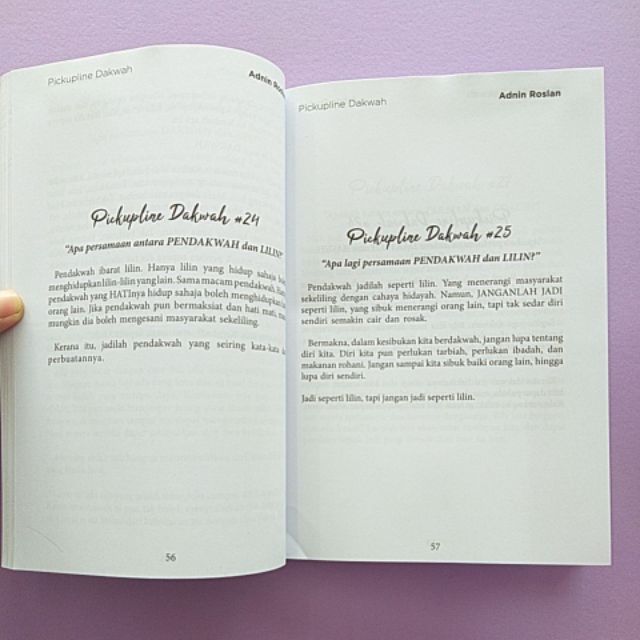 Pickupline Dakwah
Adnin
Pickupline Dakwah #24
"Apa persamaan antara PENDAKWAH dan LILIN?"
Pendakwah ibarat lilin. Hanya lilin yang hidup sahaja
menghidupkan lilin-lilin yang lain. Sama macam pendakwah,
pendakwah yang HATInya hidup sahaja boleh menghidupkan
orang lain. Jika pendakwah pun bermaksiat dan hati mati,
mungkin dia boleh mengesani masyarakat sekeliling.
Kerana itu, jadilah pendakwah yang seiring kata-kata
perbuatannya.
56
Pickupline Dakwah
Adnin Roslan
Pickupline Dakwah #25
"Apa lagi persamaan PENDAKWAH dan LILIN?"
Pendakwah jadilah seperti lilin. Yang menerangi masyarakat
sekeliling dengan cahaya hidayah. Namun, JANGANLAH JADI
seperti lilin, yang sibuk menerangi orang lain, tapi tak sedar diri
sendiri semakin cair dan rosak.
Bermakna, dalam kesibukan kita berdakwah, jangan lupa tentang
diri kita. Diri kita pun perlukan tarbiah, perlukan ibadah, dan
makanan rohani. Jangan sampai kita sibuk baiki orang lain, hingga
lupa diri sendiri.
Jadi seperti lilin, tapi jangan jadi seperti lilin.
57